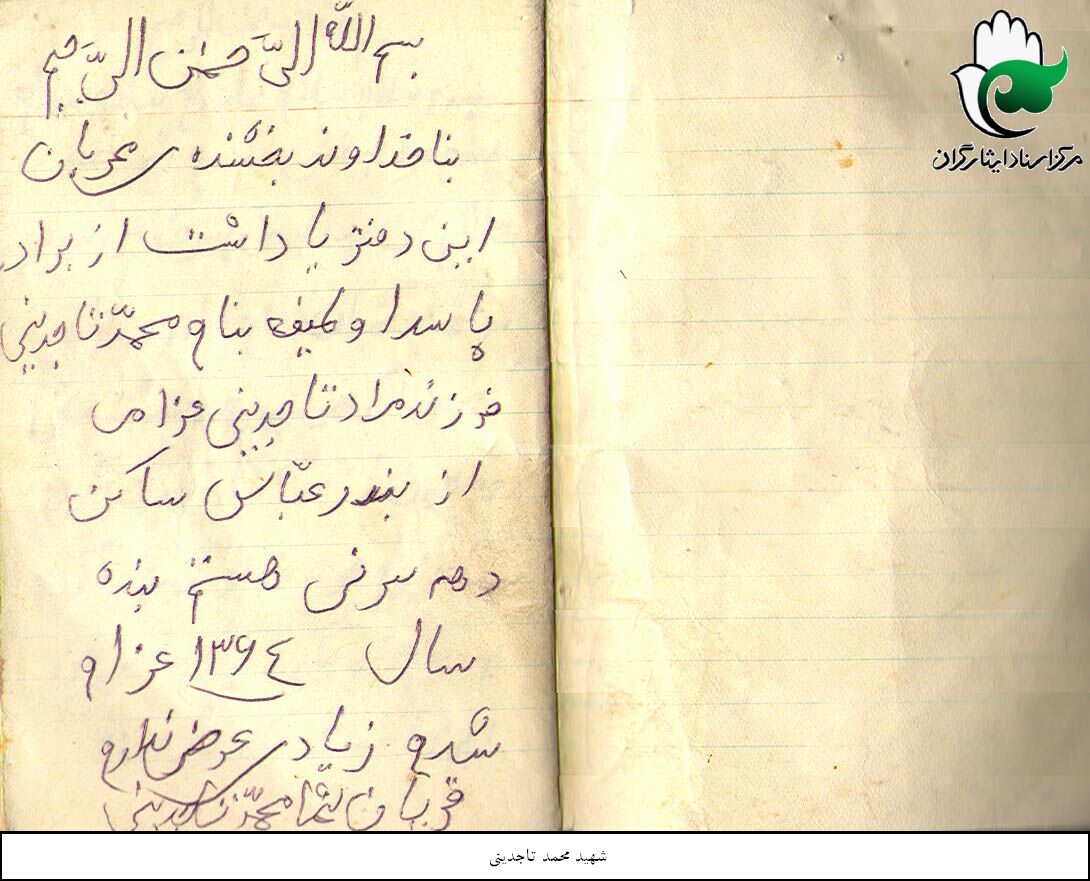 بسم الله الرَّحمٰن الرَّحیم
بنا خداوند بخشنده ی مهربان
این دفتر یا داشت از برادر
پاسدا وظیفه بنام محمّد تاجدینی
فرزند مراد تاجدینی عزام
از بندر عبّاس ساکن
دهه سرنی هستم بنده
سال ۱۳۶٤ عزام
شدم زیادی عرض ندارم
قربان شما محمّد تاجدینی
مرکز اسناد ایثارگران
شهید محمد تاجدینی